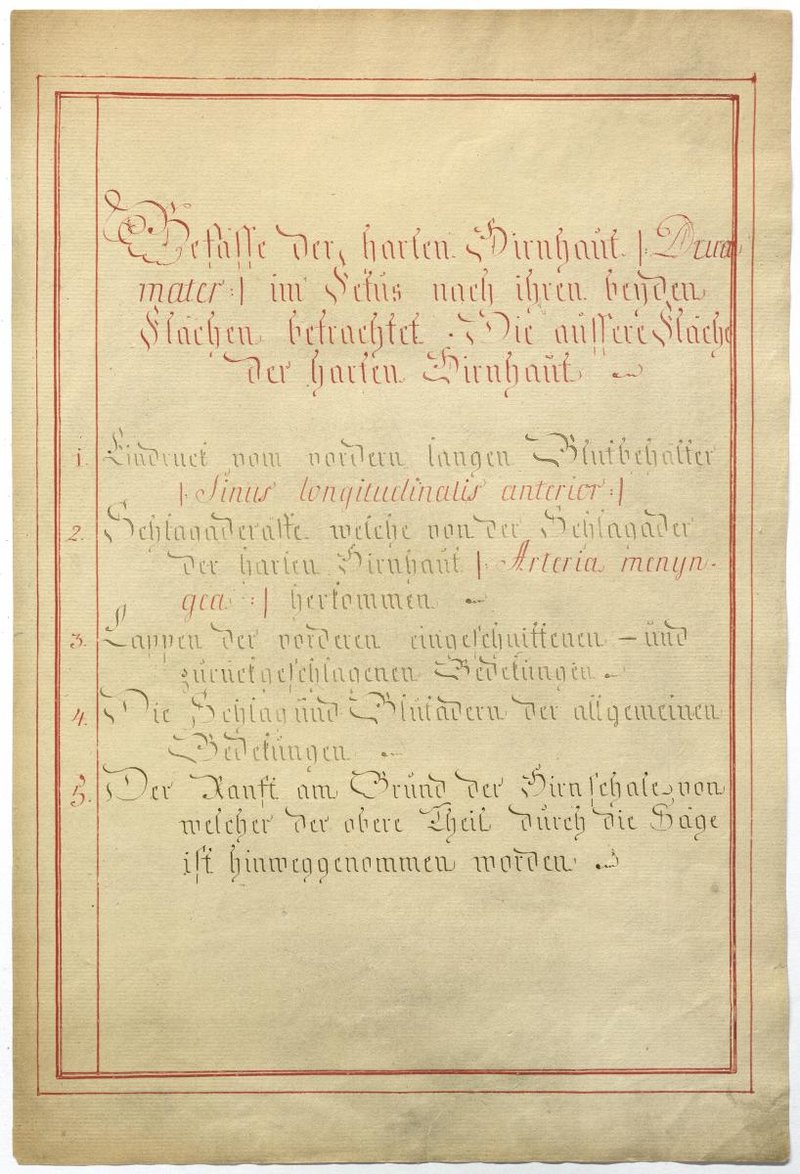 Gefässe der harten Hirnhaut |: Dura
mater :| im Fetus nach ihren beyden
Flächen betrachtet. Die äussere Fläche
der harten Hirnhaut
1. Eindruck vom vordern langen Blutbehälter
|: Sinus longitudinalis anterior :|
2. Schlagaderäste welche von der Schlagader
der harten Hirnhaut |: Arteria menyn-
gea :| herkommen
3. Lappen der vorderen eingeschnittenen – und
zurückgeschlagenen Bedekungen.
4. Die Schlag und Blutadern der allgemeinen
Bedekungen
5. Der Ranft am Grund der Hirnschale von
welcher der obere Theil durch die Säge
ist hinweggenommen worden